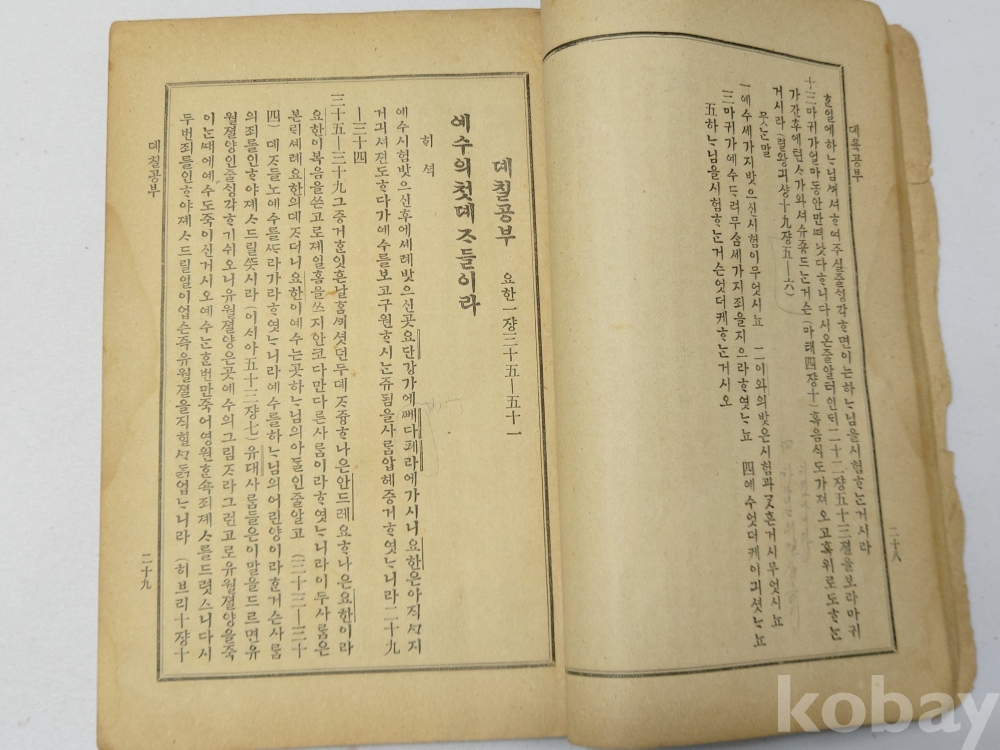 뎨륙공부
ᄒᆞᆯ일에하ᄂᆞ님ᄭᅴ셔ᄒᆞ여주실줄ᄉᆡᆼ각ᄒᆞ면이ᄂᆞᆫ하ᄂᆞ님을시험ᄒᆞᄂᆞᆫ거시라
十三마귀가얼마동안만ᄯᅥ낫다ᄒᆞ니다시온줄알터인ᄃᆡ二十二쟝五十三졀을보라마귀
가간후에텬ᄉᆞ가와셔슈죵드ᄂᆞᆫ거슨 (마태四쟝十) 혹음식도가져오고혹위로도ᄒᆞᄂᆞᆫ
거시라 (렬왕긔샹十九쟝五—六)
뭇ᄂᆞᆫ말
一예수세가지밧으신시험이무엇시뇨 二이와의밧은시험과ᄀᆞᆺ흔거시무엇시뇨
三마귀가예수ᄃᆞ려무슴세가지죄을지으라ᄒᆞ엿ᄂᆞ뇨 四예수엇더케이긔셧ᄂᆞ뇨
五하ᄂᆞ님을시험ᄒᆞᄂᆞᆫ거슨엇더케ᄒᆞᄂᆞᆫ거시오
二十八
뎨칠공부 요한一쟝三十五—五十一
예수의첫뎨ᄌᆞ들이라
허셕
예수시험밧으신후에셰례밧으신곳요단강가에ᄲᅦ다폐라에가시니요한은아직ᄭᆞ지
거긔셔젼도ᄒᆞ다가예수를보고구원ᄒᆞ시ᄂᆞᆫ쥬됨을사ᄅᆞᆷ압헤증거ᄒᆞ엿ᄂᆞ니라二十九
—三十四
三十五—三十九그증거ᄒᆞᆫ잇흔날ᄒᆞᆷᄭᅴ셧던두뎨ᄌᆞ즁ᄒᆞ나은안드레요ᄒᆞ나은요한이라
요한이복음을쓴고로졔일홈을쓰지안코다만다른사ᄅᆞᆷ이라ᄒᆞ엿ᄂᆞ니라이두사ᄅᆞᆷ은
본ᄅᆡ셰례요한의뎨ᄌᆞ더니요한이예수ᄂᆞᆫ곳하ᄂᆞ님의아ᄃᆞᆯ인줄알고 (三十三—三十
四) 뎨ᄌᆞ들노예수를ᄯᆞ라가라ᄒᆞ엿ᄂᆞ니라예수를하ᄂᆞ님의어린양이라ᄒᆞᆫ거슨사ᄅᆞᆷ
의죄를인ᄒᆞ야졔ᄉᆞ드릴ᄯᅳᆺ시라 (이사야五十三쟝七) 유대사ᄅᆞᆷ들은이말을드르면유
월졀양인줄ᄉᆡᆼ각ᄒᆞ기쉬오니유월졀양은곳예수의그림ᄌᆞ라그런고로유월졀양을죽
이ᄂᆞᆫᄯᅢ에예수도죽이신거시오예수ᄂᆞᆫᄒᆞᆫ번만죽어영원ᄒᆞᆫ쇽죄졔ᄉᆞ를드렷스니다시
두번죄를인ᄒᆞ야졔ᄉᆞ드릴일이업슨즉유월졀을직힐ᄭᆞᄃᆞᆰ업ᄂᆞ니라 (히브리十쟝十
뎨칠공부
二十九
kobay